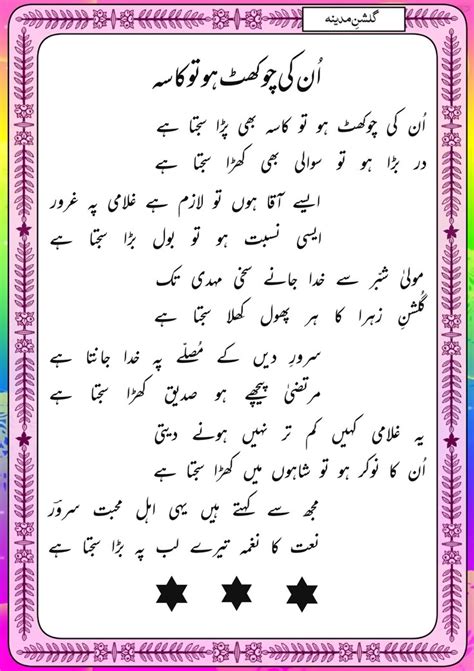 گلشنِ مدینہ
اُن کی چوکھٹ ہو تو کاسہ
اُن کی چوکھٹ ہو تو کاسہ بھی پڑا سجتا ہے
در بڑا ہو تو سوالی بھی کھڑا سجتا ہے
ایسے آقا ہوں تو لازم ہے غلامی پہ غرور
ایسی نسبت ہو تو بول بڑا سجتا ہے
مولیٰ شبر سے خدا جانے سخی مہدی تک
گُلشنِ زہرا کا ہر پھول کھلا سجتا ہے
سرورِ دیں کے مُصلّے پہ خدا جانتا ہے
مرتضیٰ پیچھے ہو صدیق کھڑا سجتا ہے
یہ غلامی کہیں کم تر نہیں ہونے دیتی
اُن کا نوکر ہو تو شاہوں میں کھڑا سجتا ہے
مجھ سے کہتے ہیں یہی اہل محبت سرورؔ
نعت کا نغمہ تیرے لب پہ بڑا سجتا ہے